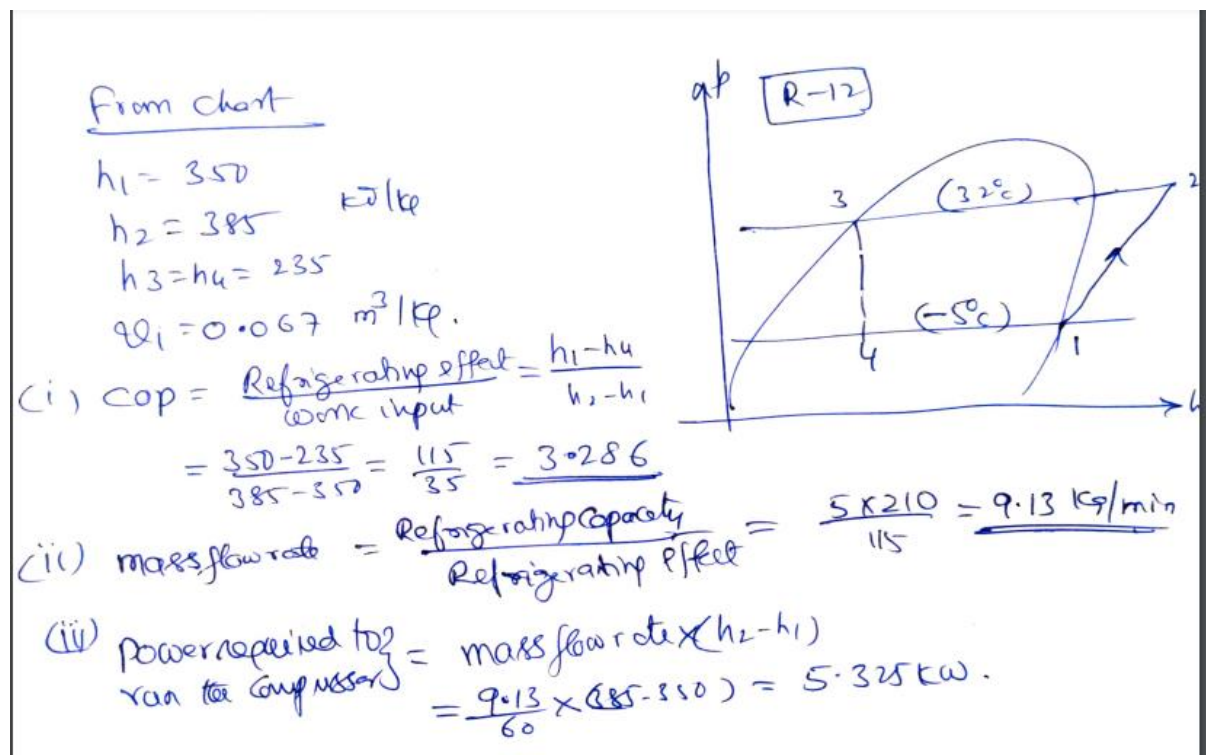 From chart
h1 = 350
h2 = 385 kJ/kg
h3 = h4 = 235
v1 = 0.067 m³/kg.
(i) COP = Refrigerating effect / work input = h1-h4 / h2-h1
= 350-235 / 385-350 = 115 / 35 = 3.286
(ii) mass flow rate = Refrigerating Capacity / Refrigerating effect = 5x210 / 115 = 9.13 kg/min
(iii) power required to
run the compressor } = mass flow rate x (h2-h1)
= 9.13 / 60 x (385-350) = 5.325 kW.
p
R-12
3 (32°c) 2
(-5°c)
4 1
h